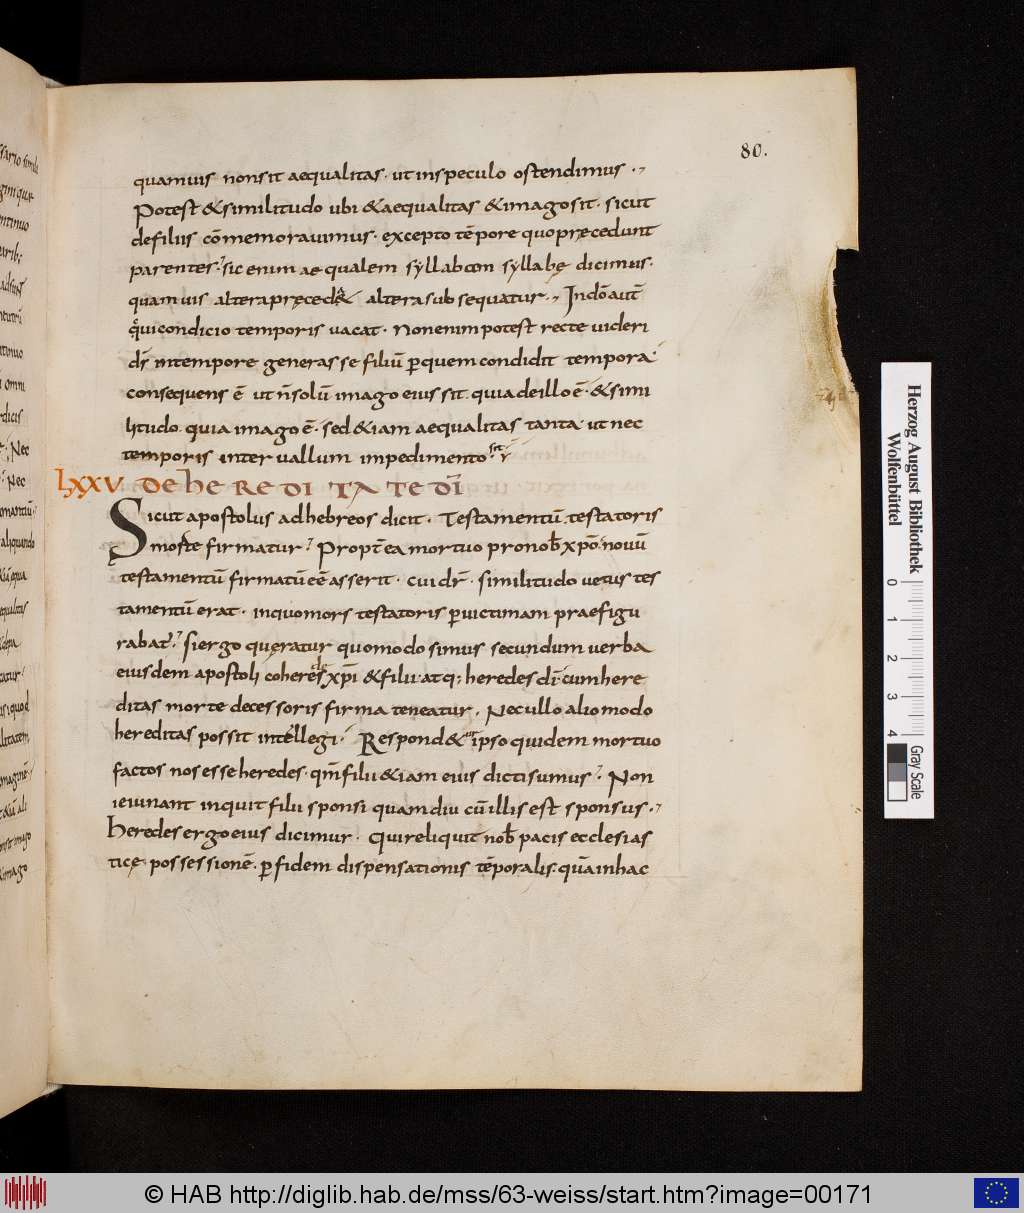 80.
quamuis nonsit aequalitas. ut inspeculo ostendimus.
Potest & similitudo ubi & aequalitas & imago sit. sicut
defiliis cōmemorauimus. excepto tēpore quo pręcedunt
parentes. sic enim aequalem syllabam syllabę dicimus.
quamuis altera pręced& altera subsequatur. Indō aut̄
quia condicio temporis uacat. Non enim potest recte uideri
d̄s in tempore generasse filiū p̱ quem condidit tempora.
consequens ē ut n̄ solū imago eius sit. quia de illo ē. & simi
litudo. quia imago ē. sed &iam aequalitas tanta. ut nec
temporis interuallum impedimento sit
LXXV. DE HEREDITATE DI
Sicut apostolus ad hebreos dicit. Testamentū testatoris
morte firmatur. Propt̄ea mortuo pro nob̄ xp̄o nouū
testamentū firmatū eē asserit. cui dr̄. similitudo uetus tes
tamentū erat. in quo mors testatoris p̱ uictimam praefigu
rabat̄. Si ergo queratur quomodo simus secundum uerba
eiusdem apostoli coheredes xp̄i & filii. atq; heredes d̄i. cum here
ditas morte decessoris firma teneatur. Nec ullo alio modo
hereditas possit intellegi. Respond& ipso quidem mortuo
factos nos esse heredes. qm̄ filii &iam eius dicti sumus. Non
ieiunant inquit filii sponsi quamdiu cū illis est sponsus.
heredes ergo eius dicimur. Qui reliquit nob̄ pacis ecclesias
ticę possessionē. p̱ fidem dispensationis tēporalis. quā in hac
Herzog August Bibliothek
Wolfenbüttel
0 1 2 3 4
Gray Scale
© HAB http://diglib.hab.de/mss/63-weiss/start.htm?image=00171